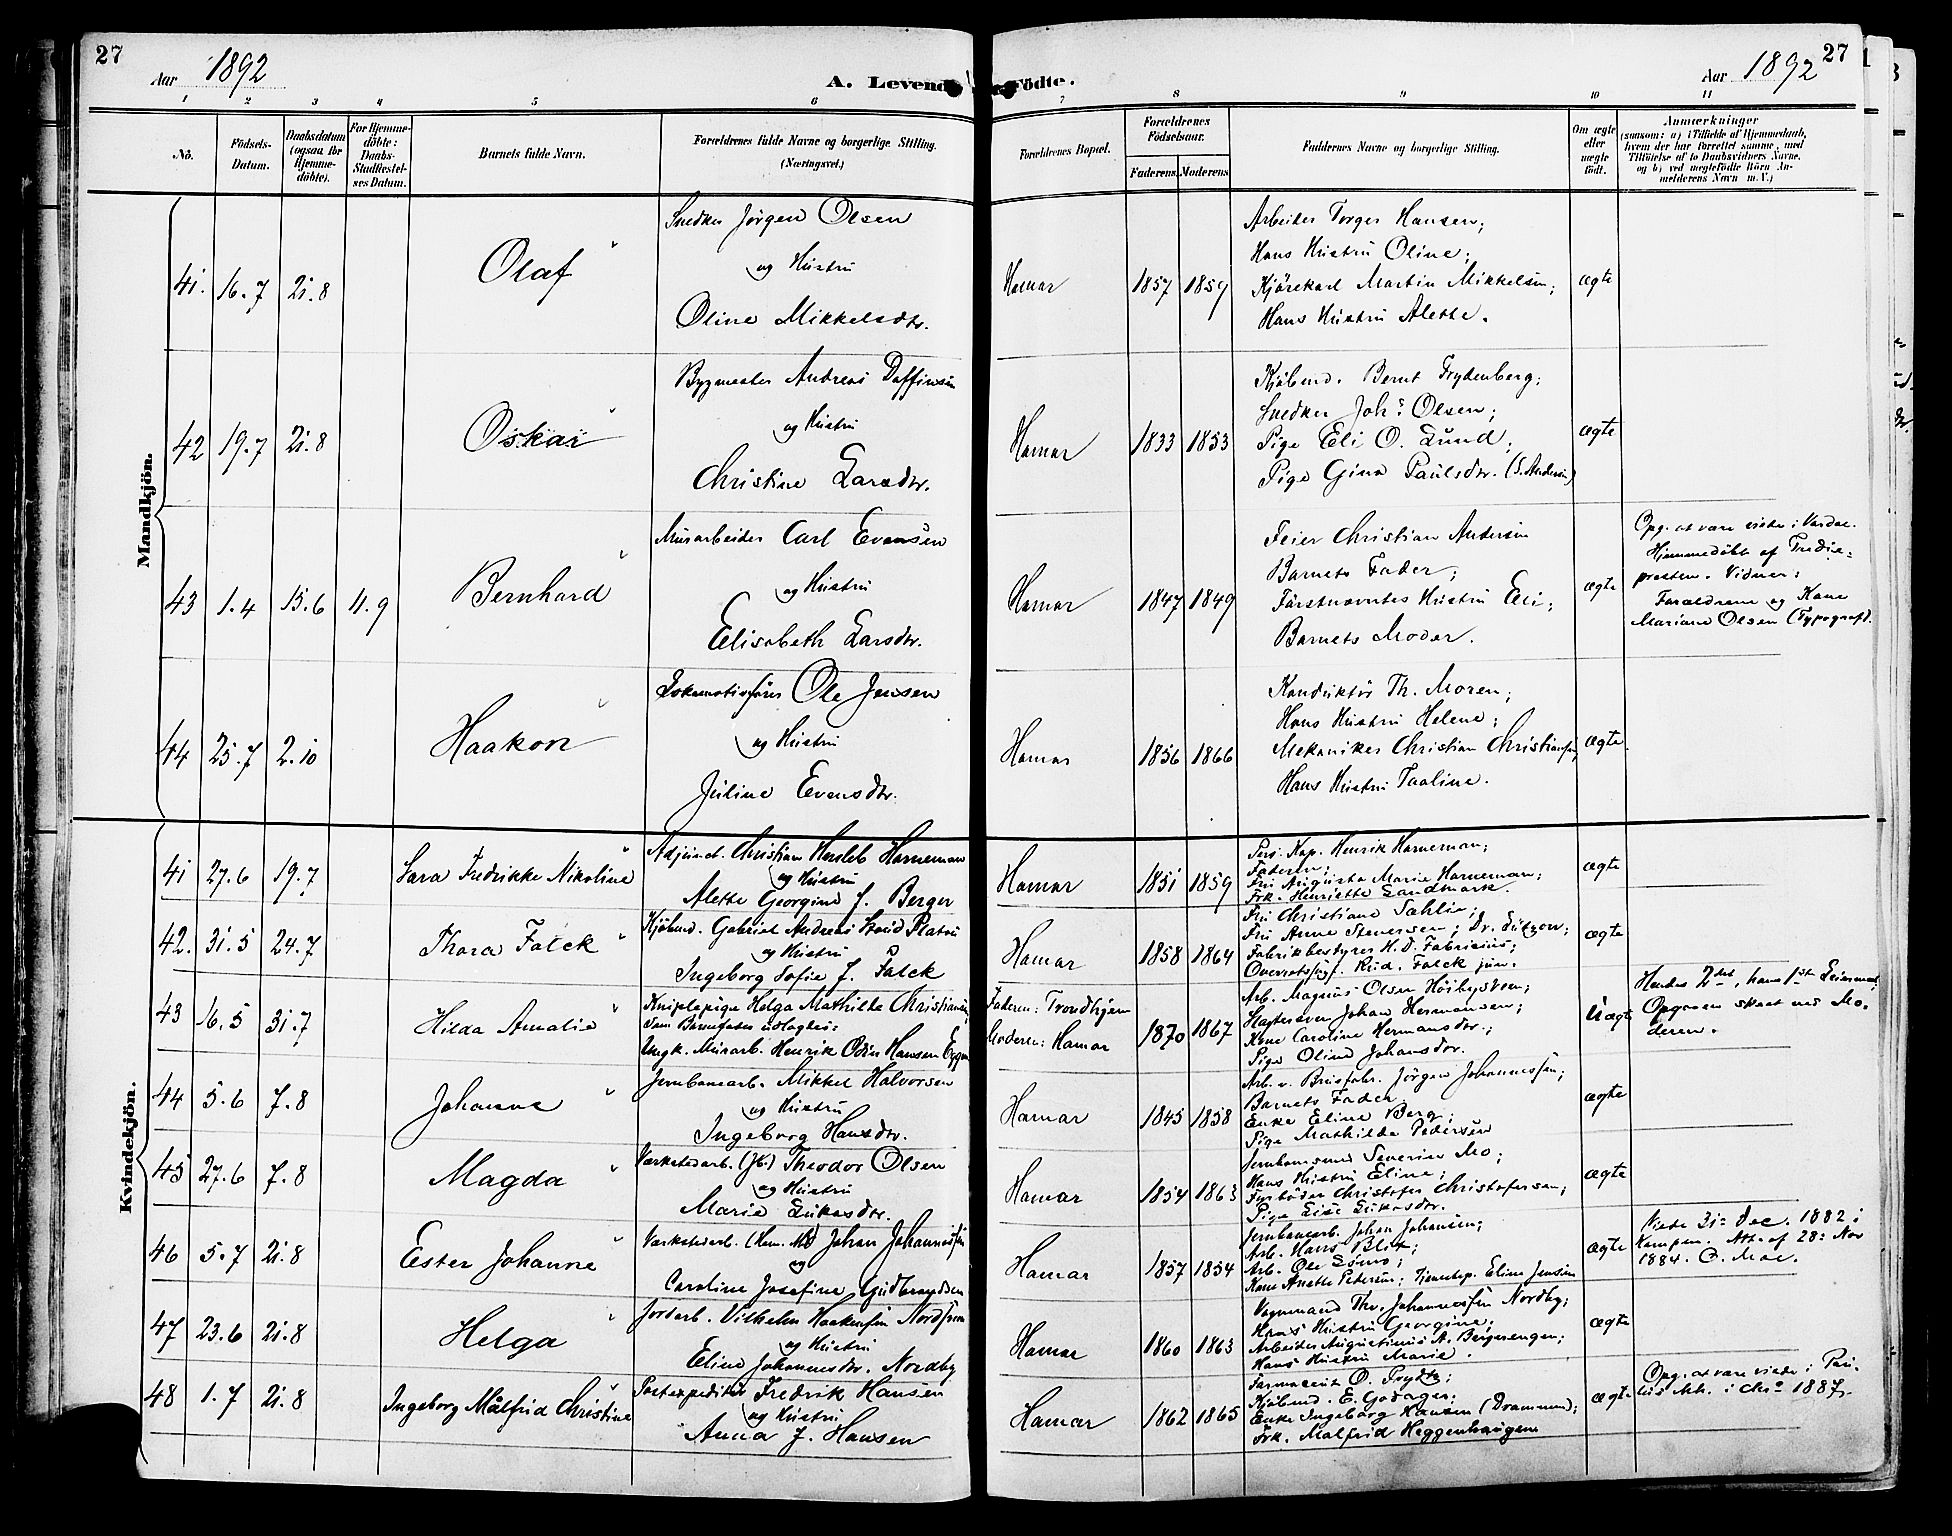 27
Aar 1892
A. Levende Födte.
Aar 1892
27
1 2 3 4 5 6 7 8 9 10 11
No.
Födsels-Datum.
Daabsdatum (ogsaa for Hjemmedöbte).
For Hjemmedöbte: Daabs-Stadfestelses Datum.
Barnets fulde Navn.
Forældrenes fulde Navne og borgerlige Stilling. (Næringsvei.)
Forældrenes Bopæl.
Forældrenes Födselsaar.
Faderens. Moderens
Faddernes Navne og borgerlige Stilling.
Om ægte eller uægte födt.
Anmærkninger
(saasom: a) i Tilfælde af Hjemmedaab,
hvem der har forrettet samme, med
Tilföielse af to Daabsvidners Navne,
og b) ved uægtefödte Börn An-
melderens Navn m. V.)
Mandkjön.
41. 16.7 21.8 Olaf
Snedker Jörgen Olsen
og Hustru
Oline Mikkelsdtr.
Hamar 1857 1859
Arbeider Torger Hansen;
Hans Hustru Oline;
Kjörekarl Martin Mikkelsen;
Hans Hustru Alette.
ægte
42 19.7 21.8 Oskar
Bygmester Andreas Daffinsen
og Hustru
Christine Larsdtr.
Hamar 1833 1853
Kjöbmd. Bernt Frydenberg;
Snedker Johs. Olsen;
Pige Eli O. Lund;
Pige Gina Paulsdtr. (S. Andersen)
ægte
43 1.4 15.6 11.9 Bernhard
Murarbeider Carl Evensen
og Hustru
Elisabeth Larsdtr.
Hamar 1847 1849
Feier Christian Andersen
Barnets Fader;
Förstnævntes Hustru Eli;
Barnets Moder.
ægte
Opg. at være viede i Vardal.
Hjemmedöbt af
presten. Vidner:
Forældrene og Kone
Mariane Olsen (Typograf).
44 25.7 2.10 Haakon
Lokomotivförer Ole Jensen
og Hustru
Juline Evensdtr.
Hamar 1856 1866
Konduktör Th. Moren;
Hans Hustru Helene;
Mekaniker Christian Christiansen;
Hans Hustru Paaline.
ægte
Kvindekjön.
41 27.6 19.7 Sara Fredrikke Nikoline
Adjunct. Christian Hersleb Horneman
og Hustru
Alette Georgine f. Berger
Hamar 1851 1859
Pers. Kap. Henrik Horneman;
Faderen;
Fru Augusta Marie Horneman;
Frk. Henriette Landmark.
ægte
42. 31.5 24.7 Thora Falck
Kjöbmd. Gabriel Andreas Stoud Platou
og Hustru
Ingeborg Sofie f. Falck
Hamar 1858 1864
Fru Christiane Sahlin;
Fru Anne Stenersen; Dr. Lützow;
Fabrikbestyrer H. D. Fabricius;
Overretssagf. Rud. Falck jun.
ægte
43 16.5 31.7 Hilda Amalie
Kniplepige Helga Mathilde Christiansen,
Som Barnefader udlagdes:
Ungk. Murarb. Henrik Odin Hansen
Faderen: Trondhjem
Moderen: Hamar
1870 1867
Arb. Magnus Olsen Höibysveen;
Slagtersven Johan Hermansen;
Kone Caroline Hermansdtr.;
Pige Oline Johansdtr.
Uægte
Hendes 2det, hans 1ste Leiermaal
Opgaven skeet ved Mo-
deren.
44 5.6 7.8 Johanne
Jernbanearb. Mikkel Halvorsen
og Hustru
Ingeborg Hansdtr.
Hamar 1845 1858
Arb. v. Brusfabr. Jörgen Johannessen;
Barnets Fader.
Enke Eline Berg;
Pige Mathilde Pedersen
ægte
45 27.6 7.8 Magda
Værkstedarb. (Jb.) Theodor Olsen
og Hustru
Marie Lukasdtr.
Hamar 1854 1863
Jernbanemd Severin Mo;
Hans Hustru Eline;
Fyrböder Christofer Christofersen;
Pige Lise Lukasdtr.
ægte
46 5.7 21.8 Ester Johanne
Værkstedarb. (Ham. Mk) Johan Johannessen
og
Caroline Josefine Gudbrandsen
Hamar 1857 1854
Jernbanearb. Johan Johansen;
Arb. Hans Blix;
Arb. Ole
Kone Anette Petersen; Tjenestep. Eline Jensen
ægte
Viede 31te Dec. 1882 i
Kampen. Att. af 28: Nov
1884. O. Moe.
47 23.6 21.8 Helga
Jordarb. Vilhelm Haakensen Nordsveen
og Hustru
Eline Johannesdtr. Nordby
Hamar 1860 1863
Vognmand Thv. Johannessen Nordby;
Hans Hustru Georgine;
Arbeider Augustinus A. Bergerengen;
Hans Hustru Marie.
ægte
48 1.7 21.8 Ingeborg Målfrid Christine
Postexpeditör Fredrik Hansen
og Hustru
Anna f. Hansen
Hamar 1862 1865
Farmaceut O. Trydts;
Kjöbmd. E. Godager;
Enke Ingeborg Hansen (Drammen);
Frk. Målfrid Heggenhaugen
ægte
Opg. at være viede i Pau-
lus Mh. i Chra 1887.